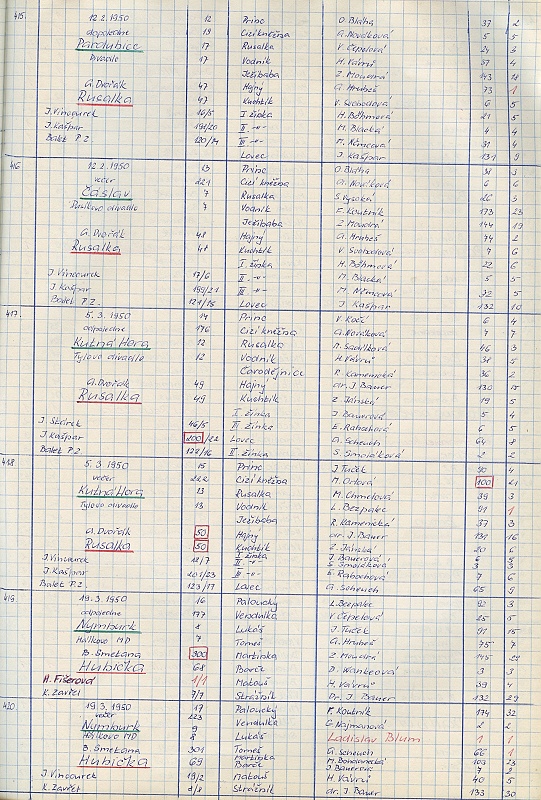 415. 12.2.1950 12 Princ O. Blaha 37 2
dopoledne 19 Cizí kněžna A. Nováková 5 5
Pardubice 17 Rusalka V. Čepelová 24 3
Divadlo 17 Vodník H. Vávrů 37 4
Ježibaba Z. Moudrá 143 18
A. Dvořák 47 Hajný G. Hrubeš 73 1
Rusalka 47 Kuchtík V. Svobodová 6 5
J. Vincourek 16/5 I. žínka H. Böhmová 21 5
J. Kašpar 198/20 II. -"- M. Blacká 4 4
Balet P.Z. 120/14 III. -"- M. Němcová 31 4
Lovec J. Kašpar 131 9
416 12.2.1950 13 Princ O. Blaha 38 3
večer 221 Cizí kněžna A. Nováková 6 6
Čáslav 7 Rusalka S. Vysoká 26 3
Dusíkovo divadlo 7 Vodník F. Koutník 173 23
Ježibaba Z. Moudrá 144 19
A. Dvořák 48 Hajný G. Hrubeš 74 2
Rusalka 48 Kuchtík V. Svobodová 7 6
I. žínka H. Böhmová 22 6
J. Vincourek 17/6 II. -"- M. Blacká 5 5
J. Kašpar 199/21 III. -"- M. Němcová 32 5
Balet P.Z. 121/15 Lovec J. Kašpar 132 10
417 5.3.1950 14 Princ V. Kočí 6 4
odpoledne 176 Cizí kněžna A. Nováková 7 7
Kutná Hora 12 Rusalka M. Sadílková 46 3
Tylovo divadlo 12 Vodník H. Vávrů 38 5
Čarodějnice R. Kamenická 36 2
A. Dvořák 49 Hajný dr. J. Bauer 130 15
Rusalka 49 Kuchtík Z. Jánská 19 5
I. žínka J. Bauerová 5 4
J. Skárek 46/5 III. žínka E. Rabochová 6 5
J. Kašpar 200/22 Lovec A. Scheuch 64 8
Balet P.Z. 122/16 II. žínka S. Smoláková 2 2
418 5.3.1950 15 Princ J. Tuček 90 4
večer 222 Cizí kněžna M. Ortová 100 21
Kutná Hora 13 Rusalka M. Chmelová 39 3
Tylovo divadlo 13 Vodník L. Bezpalec 91 1
Ježibaba R. Kamenická 37 3
A. Dvořák 50 Hajný dr. J. Bauer 131 16
Rusalka 50 Kuchtík Z. Jánská 20 6
J. Vincourek 18/7 I. žínka J. Bauerová 6
II. -"- S. Smoláková 3 3
J. Kašpar 201/23 III. -"- E. Rabochová 7 6
Balet P.Z. 123/17 Lovec A. Scheuch 65 9
419 19.3.1950 16 Paloucký L. Bezpalec 92 3
odpoledne 177 Vendulka V. Čepelová 25 5
Nymburk 8 Lukáš J. Tuček 91 15
Hálkovo MD 7 Tomeš G. Hrubeš 75 7
B. Smetana 300 Martinka Z. Moudrá 145 22
Hubička 68 Barče D. Wankeová 3 3
A. Fišerová 1/1 Matouš H. Vávrů 39 4
K. Zavřel 7/7 Strážník Dr. J. Bauer 132 29
420 19.3.1950 17 Paloucký F. Koutník 174 32
večer 223 Vendulka G. Najmanová 2 2
Nymburk 9 Lukáš Ladislav Blum 1 1
Hálkovo MD 2
B. Smetana 301 Tomeš A. Scheuch 66 1
Hubička 69 Martinka 103 23
Barče J. Bauerová 7 2
J. Vincourek 19/2 Matouš H. Vávrů 40 5
K. Zavřel 8/8 Strážník dr. J. Bauer 133 30